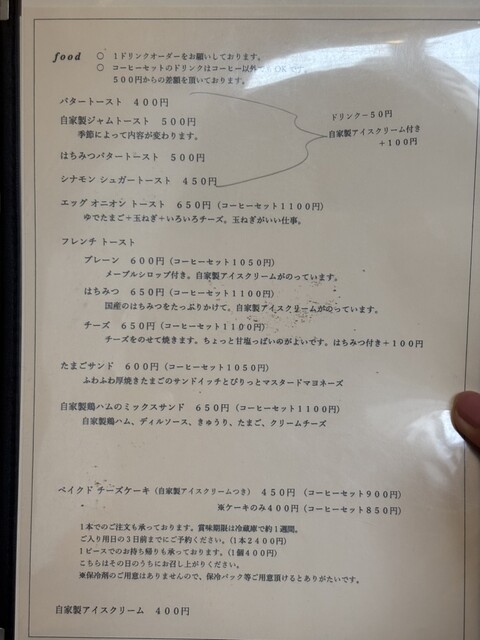 food ○ 1ドリンクオーダーをお願いしております。
○ コーヒーセットのドリンクはコーヒー以外でもOKです。
500円からの差額を頂いております。
バタートースト 400円
自家製ジャムトースト 500円
季節によって内容が変わります。
はちみつバタートースト 500円
シナモン シュガートースト 450円
ドリンク−50円
自家製アイスクリーム付き
+100円
エッグ オニオン トースト 650円(コーヒーセット1100円)
ゆでたまご+玉ねぎ+いろいろチーズ。玉ねぎがいい仕事。
フレンチ トースト
プレーン 600円(コーヒーセット1050円)
メープルシロップ付き。自家製アイスクリームがのっています。
はちみつ 650円(コーヒーセット1100円)
国産のはちみつをたっぷりかけて。自家製アイスクリームがのっています。
チーズ 650円(コーヒーセット1100円)
チーズをのせて焼きます。ちょっと甘塩っぱいのがよいです。はちみつ付き+100円
たまごサンド 600円(コーヒーセット1050円)
ふわふわ厚焼きたまごのサンドイッチとぴりっとマスタードマヨネーズ
自家製鶏ハムのミックスサンド 650円(コーヒーセット1100円)
自家製鶏ハム、ディルソース、きゅうり、たまご、クリームチーズ
ベイクド チーズケーキ(自家製アイスクリームつき) 450円(コーヒーセット900円)
※ケーキのみ400円(コーヒーセット850円)
1本でのご注文も承っております。賞味期限は冷蔵庫で約1週間。
ご入り用日の3日前までにご予約ください。(1本2400円)
1ピースでのお持ち帰りも承っております。(1個400円)
こちらはその日のうちにお召し上がりください。
※保冷剤のご用意はありませんので、保冷パック等ご用意頂けるとありがたいです。
自家製アイスクリーム 400円